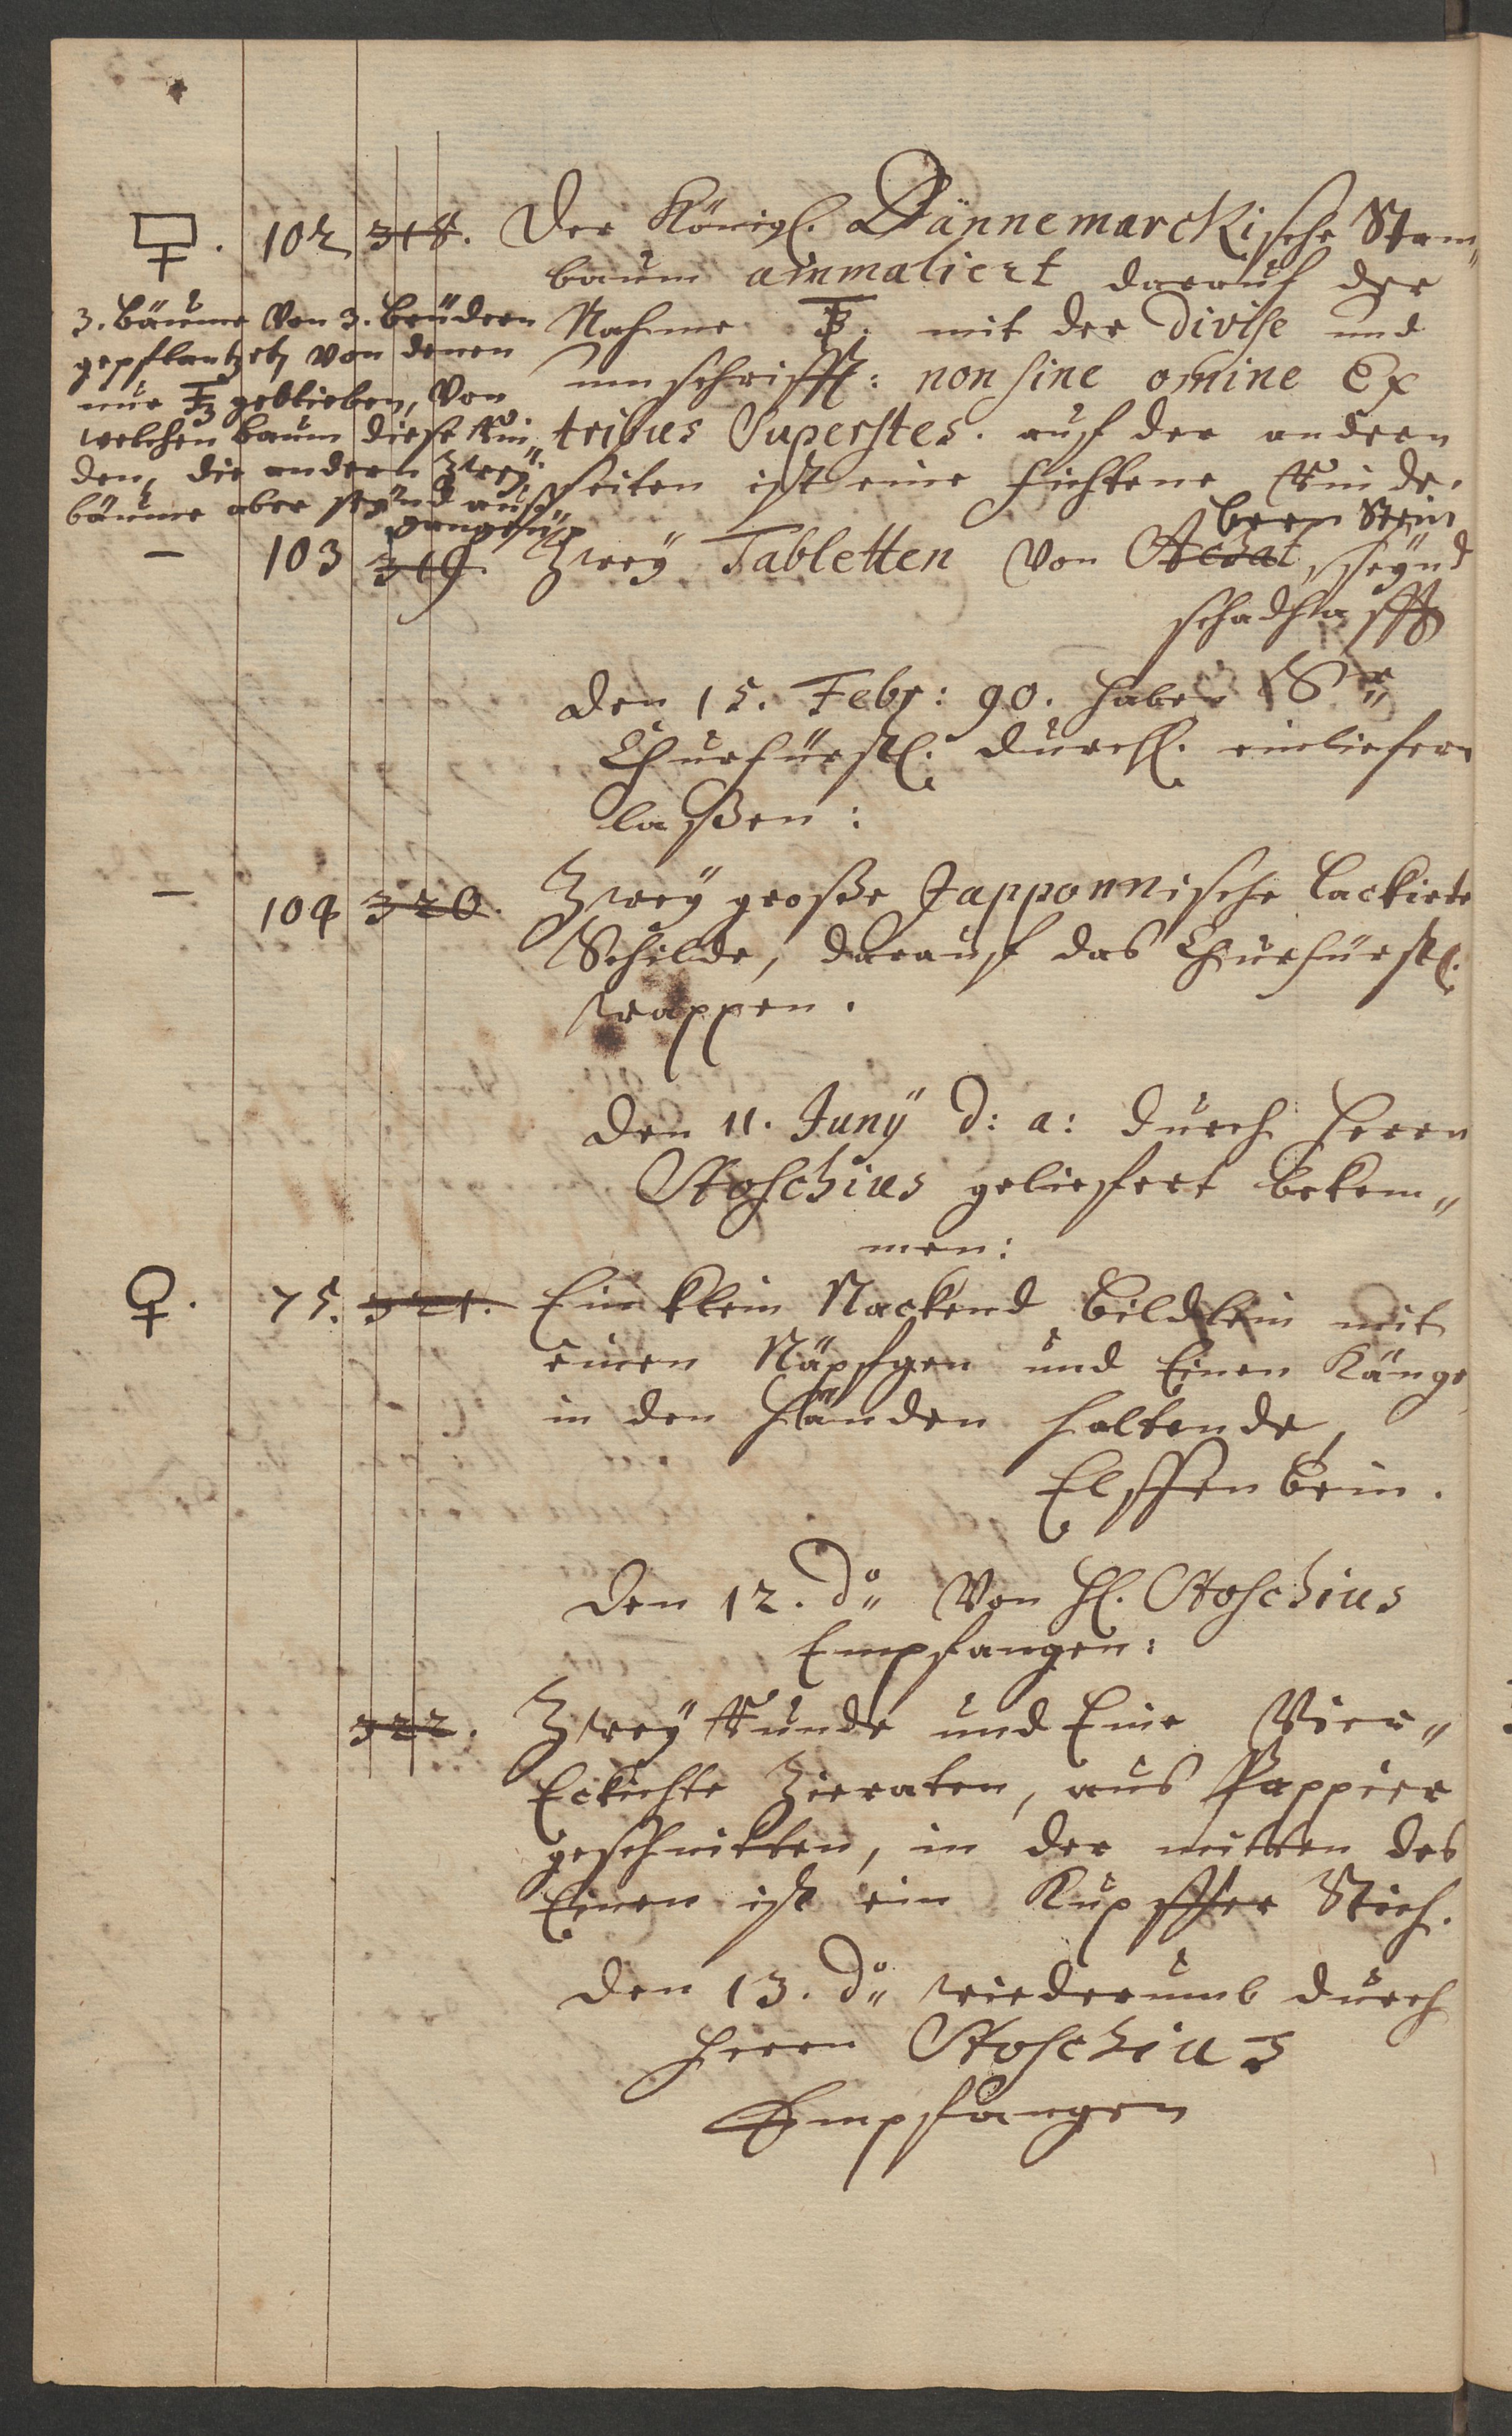 102 318. Der Königl. Dännemarckische Stam„
baum ammaliert darauf der
Nahme F3. mit der Divise und
umschrifft: non sine omine Ex
tribus Superstes. auf der andern
seiten ist eine fichtene Rinde.
3. Bäume von 3. Brüdern
gepflantzet, von denen
nur F3 geblieben, von
welchen baum diese Rin„
den, die andern zwey
bäume aber seynd auß„
gangen
bern Stein
– 103 319. Zwey Tabletten von Achat, seynd
schadhafft
Den 15. Febr: 90. haben Sr„
Churfürstl. Durchl. einliefern
laßen:
– 104 320. Zwey große Japponnische Lackirte
Schilde, darauf das Churfürstl.
wappen.
Den 11. Juny d: a: durch Herrn
Stoschius geliefert bekom„
men:
♀. 75. 321. Ein klein Nackend Bildlein mit
einen Näpfgen und Einen Känge
in den Händen haltende,
Elffenbein.
Den 12. do„ von Hl. Stoschius
Empfangen:
322. Zwey Runde und Eine Vier„
Eckichte Zieraten, aus Pappier
geschnitten, in der mitten des
Einen ist ein Kupffer Stich.
Den 13. do„ wiederumb durch
Herrn Stoschius
Empfangen